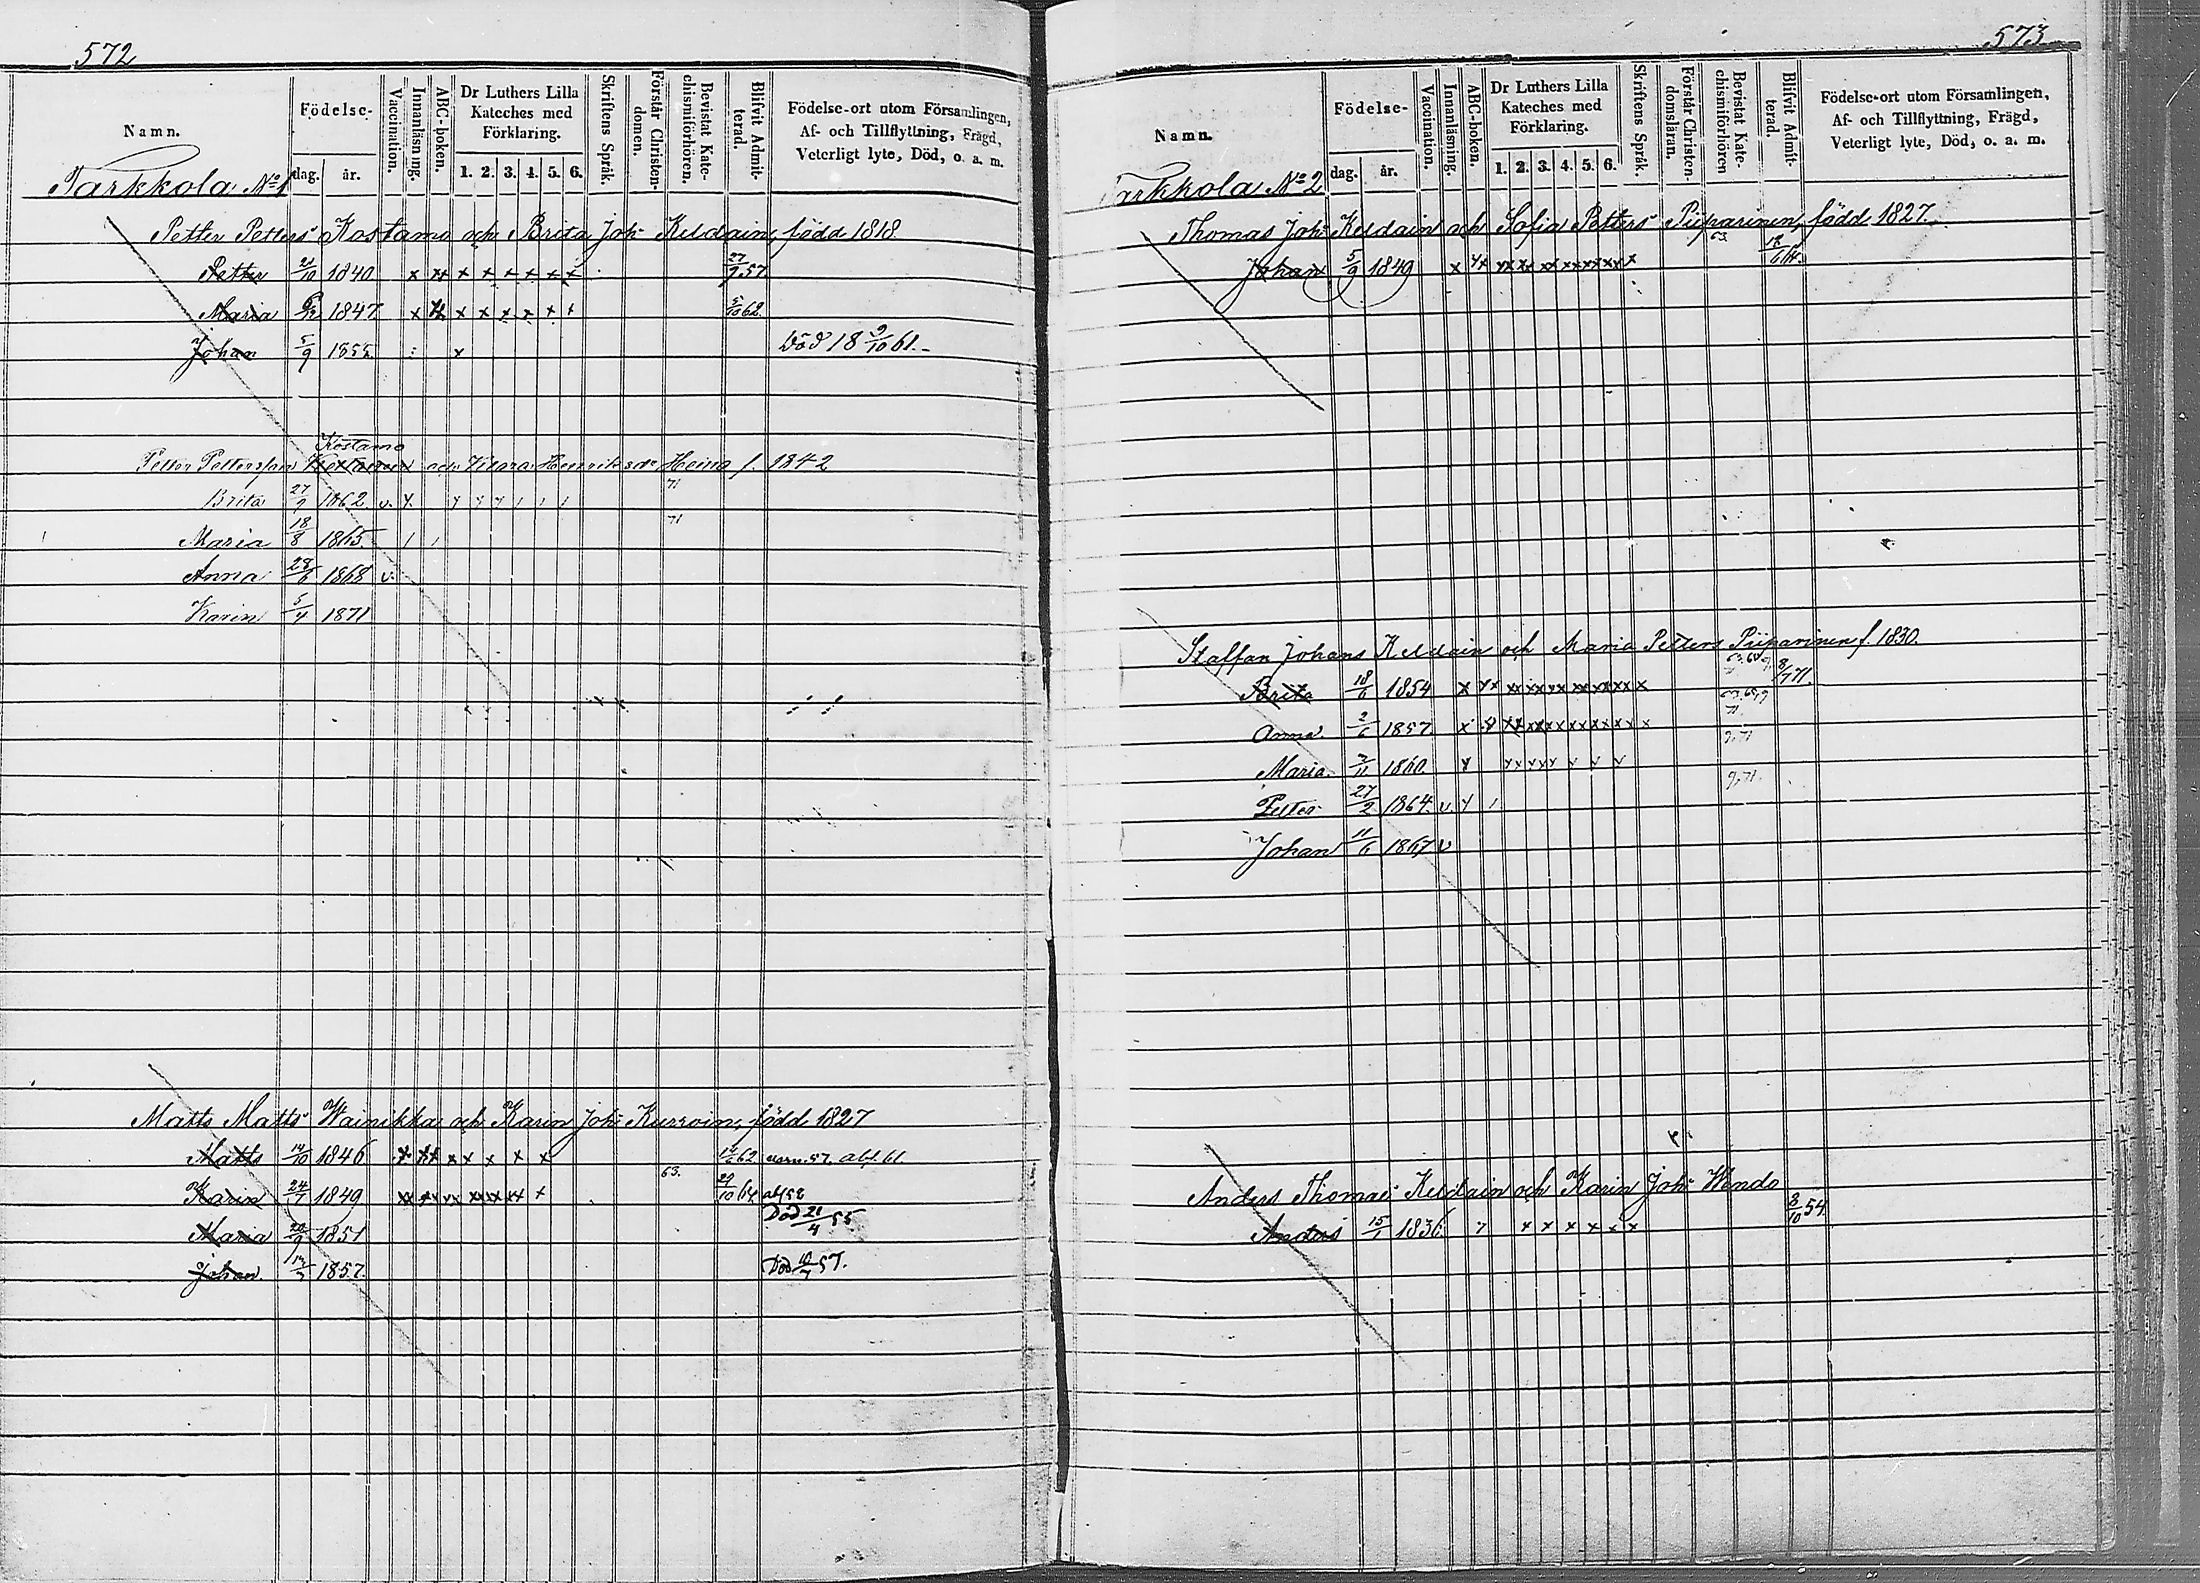 572
Namn.
Födelse-
dag. år.
Vaccination.
Innanläsning.
ABC-boken.
Dr Luthers Lilla
Kateches med
Förklaring.
1. 2. 3. 4. 5. 6.
Skriftens Språk.
Förstår Christen-
domen.
Bevistat Kate-
chismiförhören.
Blifvit Admit-
terad.
Födelse-ort utom Församlingen,
Af- och Tillflyttning, Frägd,
Veterligt lyte, Död, o. a. m.
Tarkkola No 1
Petter Petters Kostamo och Brita Joh. Keldain, född 1818
Petter 21/10 1840 x xx x x x x x x 27/9 57
Maria 1847 x x x x x x x 5/10 62.
Johan 5/9 1855 x Död 18 9/10 61.
Kostamo
Petter Pettersson och Klara Henriksdr Heino f. 1842
71
Brita 27/9 1862 v. y
71
Maria 18/8 1865
Anna 28/6 1868 v.
Karin 5/4 1871
Matts Matts Wainikka och Karin Joh. Kurvoin, född 1827
Matts 14/10 1846 x xx x x x x x 62 abs. 61
Karin 24/7 1849 63. 29/10 64.
Maria 1851 Död 21/4 55
Johan 1857. Död 57.
573
Namn.
Födelse-
dag. år.
Vaccination.
Innanläsning.
ABC-boken.
Dr Luthers Lilla
Kateches med
Förklaring.
1. 2. 3. 4. 5. 6.
Skriftens Språk.
Förstår Christen-
domsläran.
Bevistat Kate-
chismiförhören
Blifvit Admit-
terad.
Födelse-ort utom Församlingen,
Af- och Tillflyttning, Frägd,
Veterligt lyte, Död, o. a. m.
Tarkkola No 2
Thomas Joh. Keldain och Sofia Petters Piiparinen, född 1827.
Johan 5/9 1849 x 63 18/6 64.
Staffan Johans Keldain och Maria Petters Piiparinen f. 1830.
Brita 18/6 1854 x 8/7 71.
Anna. 2/6 1857. x
71
Maria. 1860. y 9, 71
Petter 27/2 1864. v. y 9, 71.
Johan 11/6 1867 v
Anders Thomas Keldain och Karin Joh. Wendo
Anders 15/1 1836. x x x x x x 8/10 54.